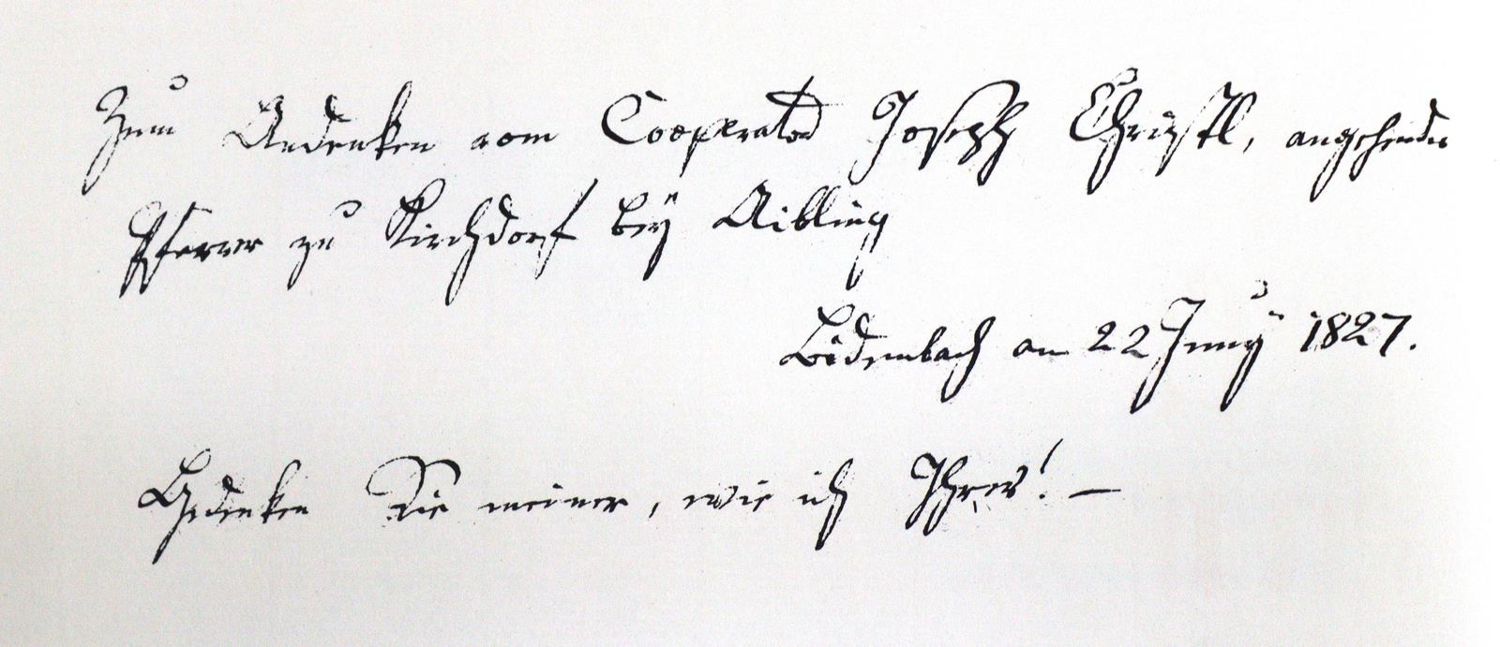 Zum Andenken vom Cooperator Joseph Christl, angehender
Pfarrer zu Kirchdorf bey Aibling
Bödenbach am 22 Juny 1827.
Gedenken Sie meiner, wie ich Ihrer! —